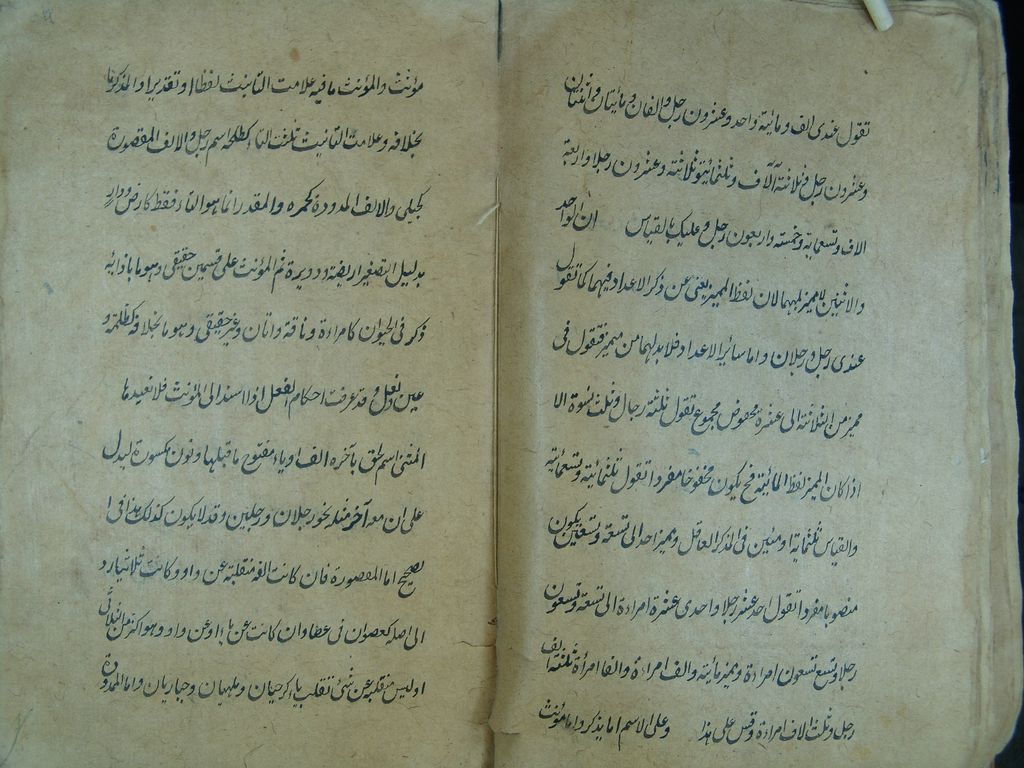 تقول عندى الف ومائة واحد وعشرون رجل والفان ومائتان واثنان
وعشرون رجل وثلاثة آلاف وثلثمائة وثلاثة وعشرون رجلا واربعة
الاف وتسعمائة وخمسة واربعون رجل وعليك بالقياس ان الواحد
والاثنين لا مميز لهما لان لفظ المميز يغنى عن ذكر الاعداد فيهما كما تقول
عندى رجل ورجلان واما سائر الاعداد فلا بد لها من مميز فتقول فى
مميز من الثلاثة الى عشرة مخفوض مجموع تقول ثلثة رجال وثلث نسوة الا
اذا كان المميز لفظ المائة فح يكون مخفوضا مفردا تقول ثلثمائة وتسعمائة
والقياس ثلثماية او مئين فى المذكر العاقل ومميز احد الى تسعة وتسعين يكون
منصوبا مفردا تقول احد عشر رجلا واحدى عشرة امراءة الى تسعة وتسعون
رجلا وتسع تسعون امراءة ومميز مائة والف امراءة والفا امرأة ثلثة الف
رجل وثلث الاف امراءة وقس على هذا وعلى الاسم اما يذكر واما مؤنث
مؤنث والمؤنث ما فيه علامت التانيث لفظا او تقديرا والمذكر ما
بخلافه وعلامت التانيث ثلثت التاء كطلحة اسم رجل والالف المقصورة
كحبلى والالف الممدودة كحمره والمقدر انما هو التاء فقط كارض ودار
بدليل التصغير اريضة ودويرة ثم المؤنث على قسمين حقيقى وهو ما باذائه
ذكر فى الحيوان كامراءة وناقة واتان وغير حقيقى وهو ما بخلافه كظلمة و
عين ونعل وقد عرفت احكام الفعل اذا اسند الى المؤنث فلا نعيدها
المثنى اسم لحق بآخره الف او ياء مفتوح ما قبلها ونون مكسورة ليدل
على ان معه آخر مثله نحو رجلان ورجلين وقد لا يكون كذلك هذا فى ا
لصحيح اما المقصورة فان كانت الفه منقلبة عن واو وكانت ثلاثيا رد
الى اصله كعصوان فى عصا وان كانت عن ياء او عن واو وهو اكثر من الثلاثى
او ليس منقلبة عن شئ تقلب ياء كرحيان وملهيان وحباريان واما الممدودة